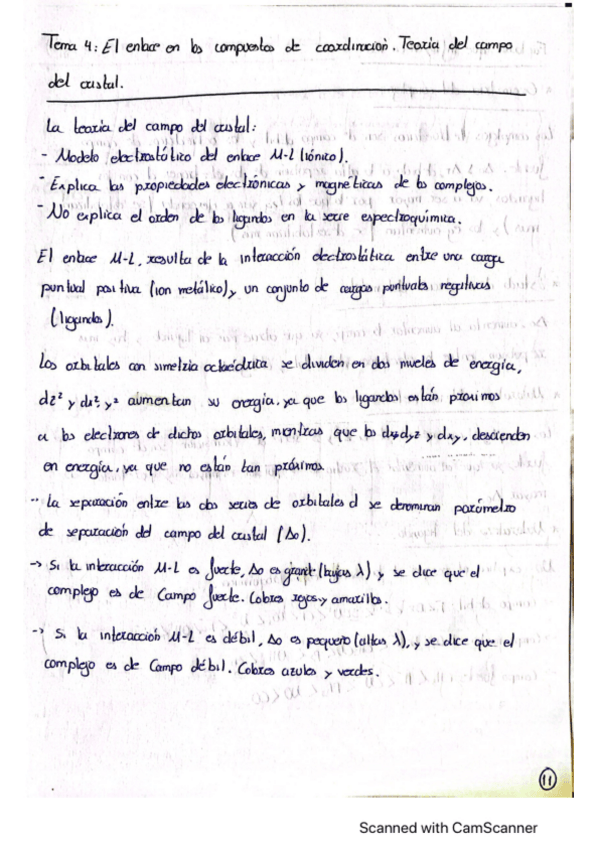 Tema 4: El enlace en los compuestos de coordinación. Teoría del campo
del cristal.
La teoría del campo del cristal:
- Modelo electrostático del enlace M-L (iónico).
- Explica las propiedades electrónicas y magnéticas de los complejos.
- No explica el orden de los ligandos en la serie espectroquímica.
El enlace M-L, resulta de la interacción electrostática entre una carga
puntual positiva (ion metálico), y un conjunto de cargas puntuales negativas
(ligandos).
Los orbitales con simetría octaédrica se dividen en dos niveles de energía,
dz² y dx²-y² aumentan su energía, ya que los ligandos están próximos
a los electrones de dichos orbitales, mientras que los dxz, dyz y dxy, descienden
en energía, ya que no están tan próximos.
-- La separación entre las dos series de orbitales d se denominan parámetro
de separación del campo del cristal (Δo).
-> Si la interacción M-L es fuerte, Δo es grande (bajas λ) y se dice que el
complejo es de Campo fuerte. Cobres rojos y amarillos.
-> Si la interacción M-L es débil, Δo es pequeño (altas λ), y se dice que el
complejo es de Campo débil. Cobres azules y verdes.
11
Scanned with CamScanner